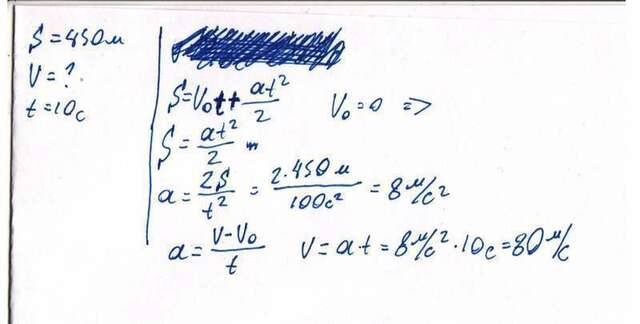 S = 450 м
V = ?
t = 10 с
S = V₀t + at²/2    V₀ = 0 =>
S = at²/2
a = 2S/t² = 2·450 м/100 с² = 8 м/с²
a = V-V₀/t    V = at = 8 м/с² · 10 с = 80 м/с